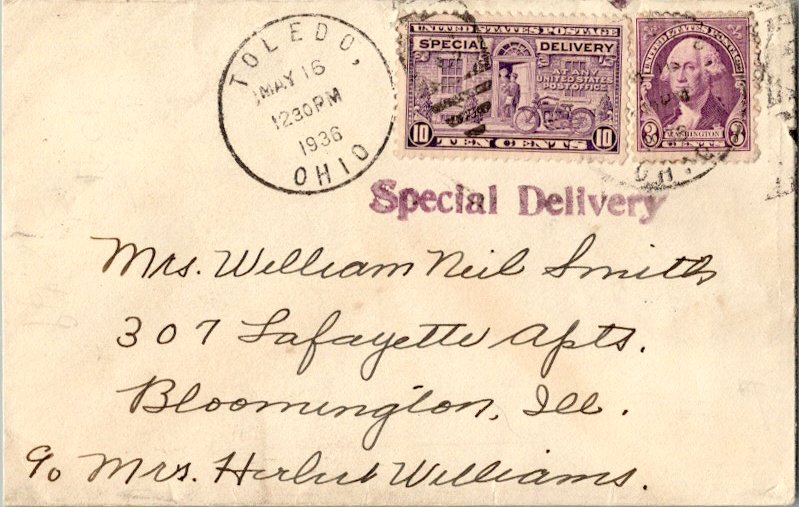 TOLEDO,
MAY 16
1230 PM
1936
OHIO
UNITED STATES POSTAGE
SPECIAL DELIVERY
AT ANY
UNITED STATES
POST OFFICE
10 10
TEN CENTS
UNITED STATES POSTAGE
WASHINGTON
3 3
CENTS
Special Delivery
Mrs. William Neil Smith
307 Lafayette Apts.
Bloomington, Ill.
c/o Mrs. Herbert Williams.